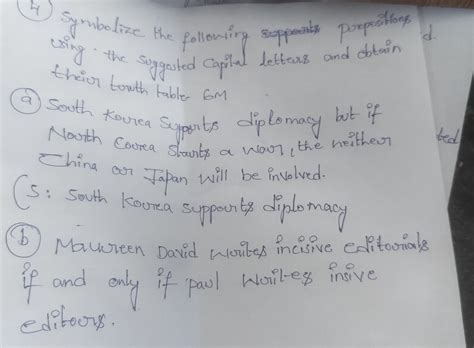 4 Symbolize the following supports porpositions
using . the suggested Capital letters and obtain d
their touth table 6M
a South Kourea Supports diplomacy but if
North Courea Starts a waor, the neither ted
China oor Japan will be involved.
(S: South Kourea suppourts diplomacy
b Maureen David worites incisive editorials
if and only if paul writes insive
editoors.